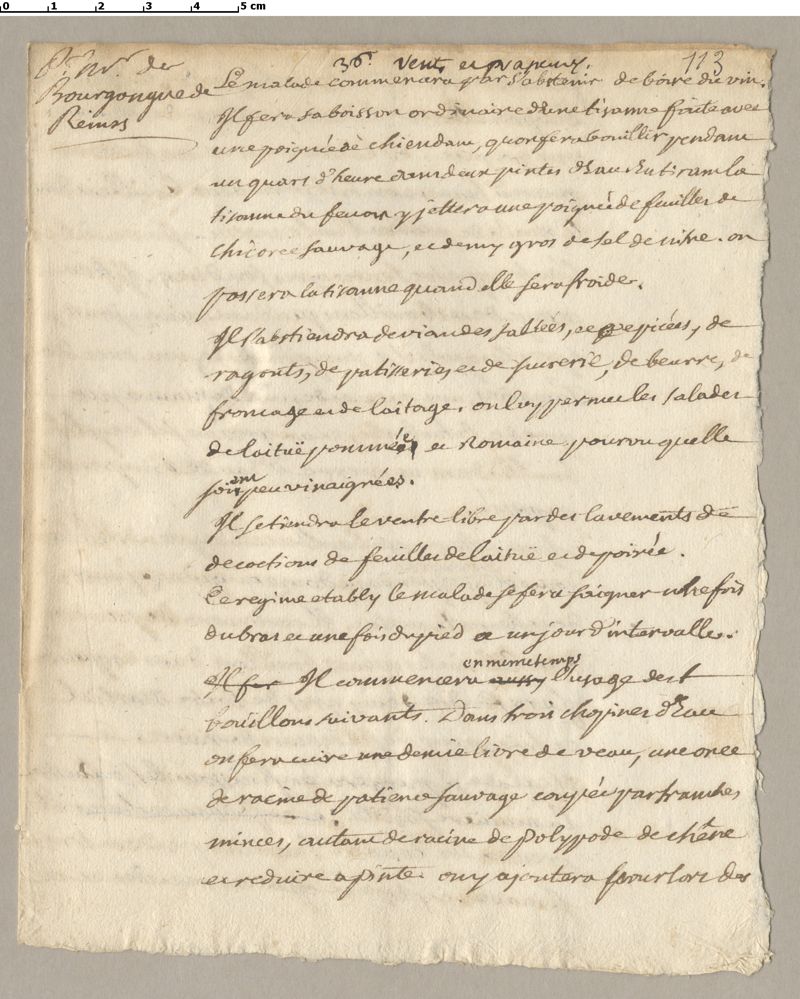 0 1 2 3 4 5 cm
36e. Vents et vapeurs. 113
Pr. Mr. de
Bourgongue de
Reims
Le malade commencera par s'abstenir de boire du vin.
Il fera sa boisson ordinaire d'une tisanne faite avec
une poignée de chiendant, qu'on fera bouillir pendant
un quart d'heure dans deux pintes d'Eau. En tirant la
tisanne du feu on y jettera une poignée de feuilles de
chicorée sauvage, et demy gros de sel de nitre. on
passera la tisanne quand elle sera froide.
Il s'abstiendra de viandes sallées, et epicées, de
ragouts, de patisseries, et de sucrerie, de beurre, de
fromage et de laitage. on luy permet les salades
de laituë pommée et Romaine pourvu quelle
soient peu vinaigrées.
Il se tiendra le ventre libre par des lavements de
decoctions de feuilles de laituë et de poirée.
Ce regime etably le malade se fera saigner une fois
du bras et une fois du pied a un jour d'intervalle.
en meme temps
Il fer Il commencera aussy l'usage des
bouillons suivants. Dans trois chopines d'Eau
on fera cuire une demie livre de veau, une once
de racine de patience sauvage coupée par tranches
minces, autant de racine de polypode de chêne
et reduire a pinte. on y ajoutera pour lors des